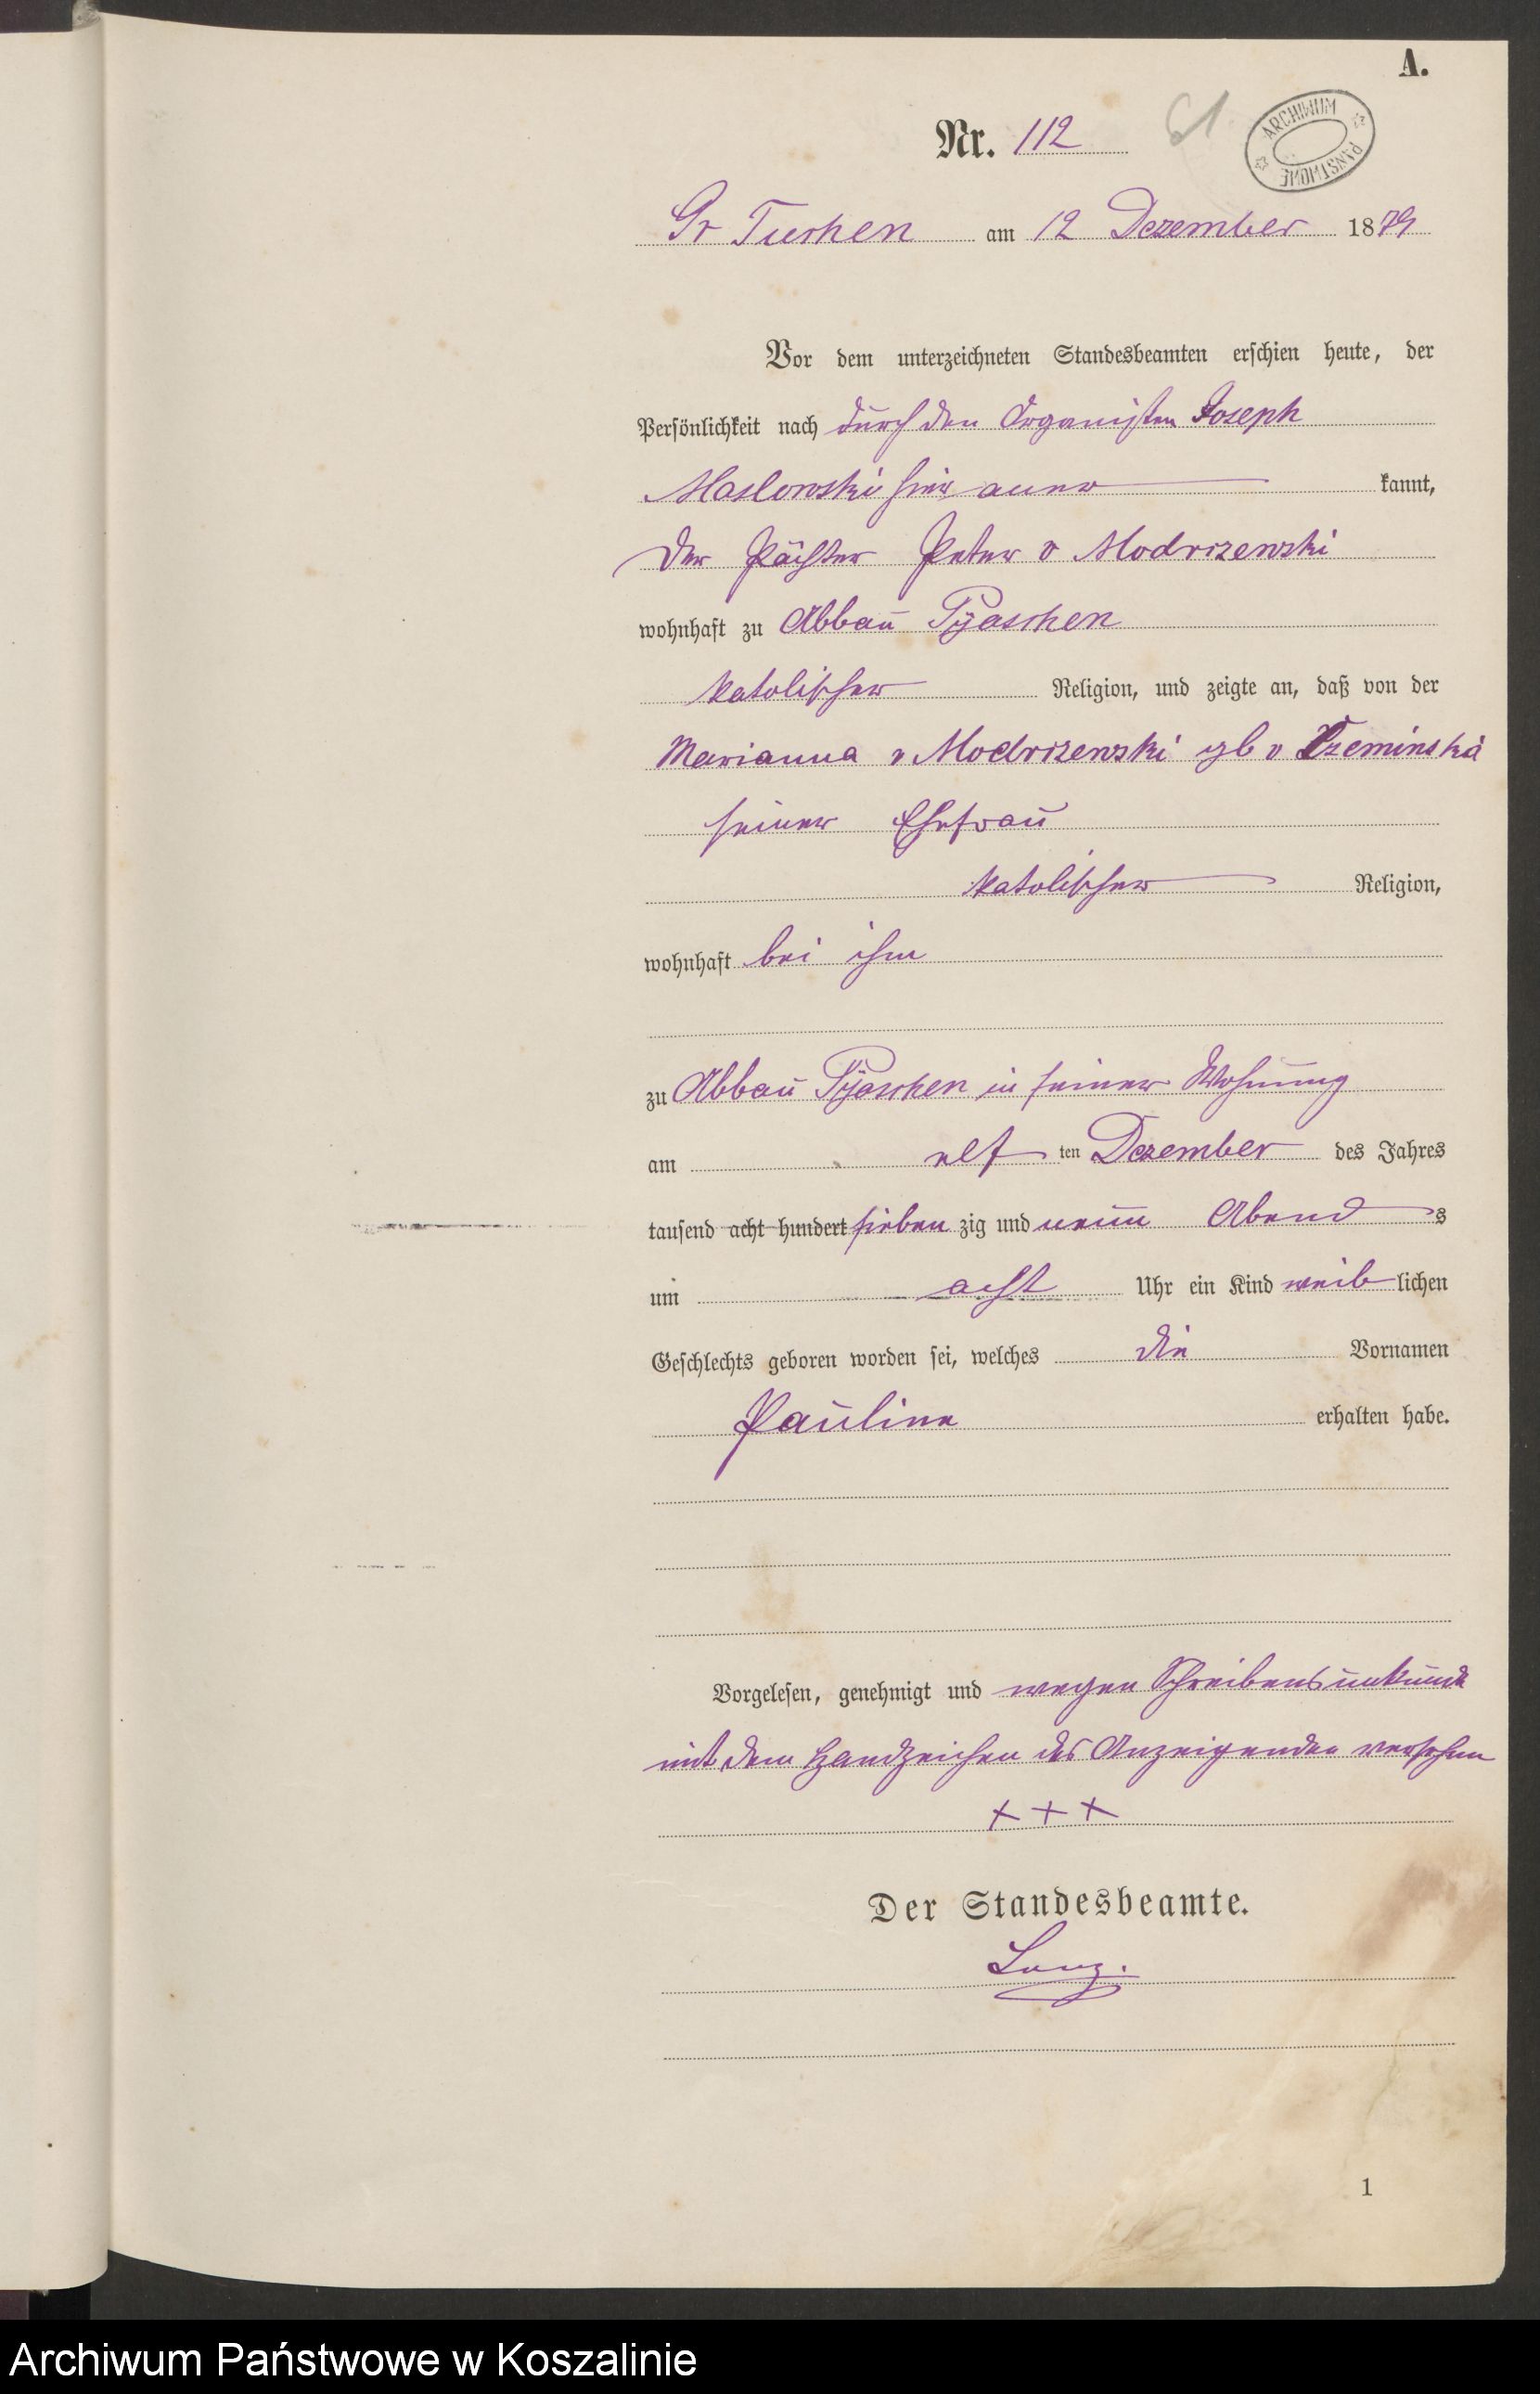 A.
Nr. 112
61.
ARCHIWUM PAŃSTWOWE
Gr Tuchen am 12 Dezember 1879
Vor dem unterzeichneten Standesbeamten erschien heute, der
Persönlichkeit nach durch den Organisten Joseph
Maslowski hier aner kannt,
der Pächter Peter v Modrizewski
wohnhaft zu Abbau Pyaschen
katolischer Religion, und zeigte an, daß von der
Marianna v Modrizewski geb v Czeminska
seiner Ehefrau
katolischer Religion,
wohnhaft bei ihm
zu Abbau Pyaschen in seiner Wohnung
am elf ten Dezember des Jahres
tausend acht hundert sieben zig und neun Abend s
um acht Uhr ein Kind weib lichen
Geschlechts geboren worden sei, welches die Vornamen
Pauline erhalten habe.
Vorgelesen, genehmigt und wegen Schreibensunkunde
mit dem Handzeichen des Anzeigenden versehen
+ + +
Der Standesbeamte.
1
Archiwum Państwowe w Koszalinie